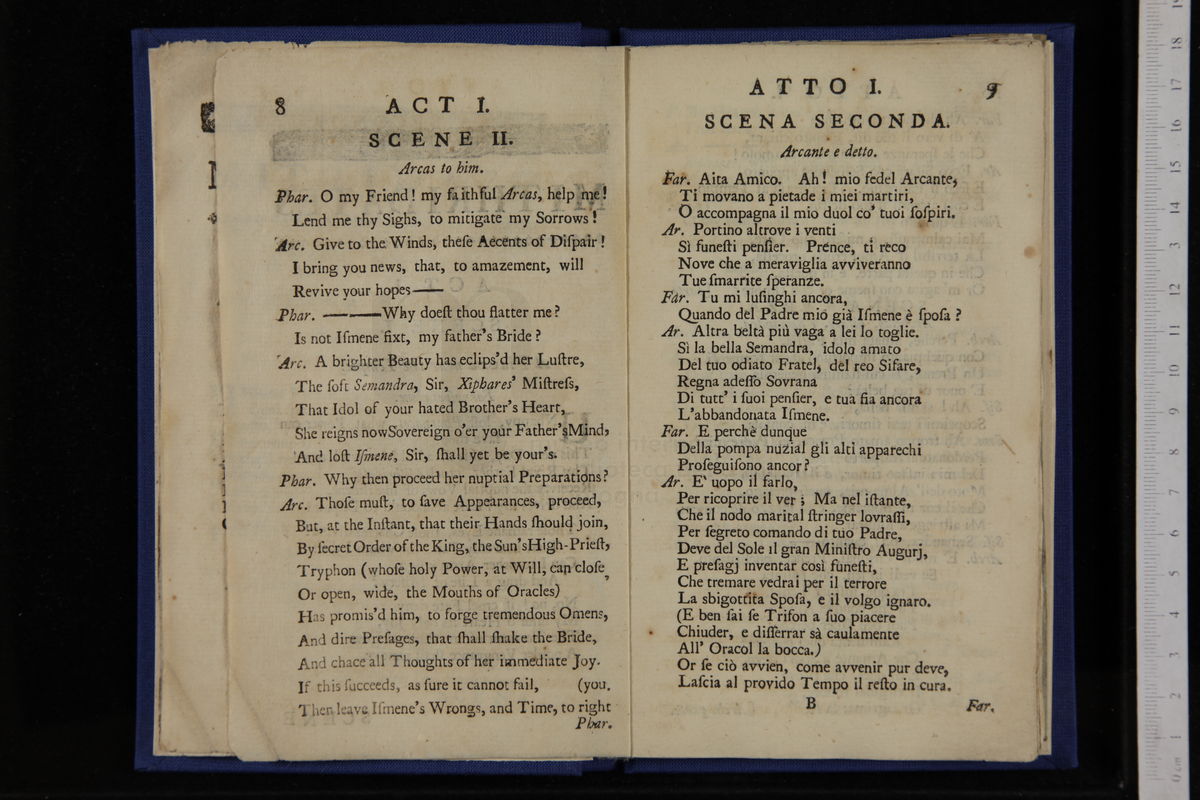 8
ACT I.
SCENE II.
Arcas to him.
Phar. O my Friend! my faithful Arcas, help me!
Lend me thy Sighs, to mitigate my Sorrows!
Arc. Give to the Winds, theſe Accents of Diſpair!
I bring you news, that, to amazement, will
Revive your hopes——
Phar. ————Why doeſt thou flatter me?
Is not Iſmene fixt, my father's Bride?
Arc. A brighter Beauty has eclips'd her Luſtre,
The ſoft Semandra, Sir, Xiphares' Miſtreſs,
That Idol of your hated Brother's Heart,
She reigns nowSovereign o'er your Father'sMind,
And loſt Iſmene, Sir, ſhall yet be your's.
Phar. Why then proceed her nuptial Preparations?
Arc. Thoſe muſt, to ſave Appearances, proceed,
But, at the Inſtant, that their Hands ſhould join,
By ſecret Order of the King, the Sun'sHigh-Prieſt,
Tryphon (whoſe holy Power, at Will, can cloſe,
Or open, wide, the Mouths of Oracles)
Has promis'd him, to forge tremendous Omens,
And dire Preſages, that ſhall ſhake the Bride,
And chace all Thoughts of her immediate Joy.
If this ſucceeds, as ſure it cannot fail, (you.
Then leave Iſmene's Wrongs, and Time, to right
Phar.
ATTO I. 9
SCENA SECONDA.
Arcante e detto.
Far. Aita Amico. Ah! mio fedel Arcante,
Ti movano a pietade i miei martiri,
O accompagna il mio duol co' tuoi ſoſpiri.
Ar. Portino altrove i venti
Sì funeſti penſier. Prence, ti reco
Nove che a meraviglia avviveranno
Tue ſmarrite ſperanze.
Far. Tu mi luſinghi ancora,
Quando del Padre mio già Iſmene è ſpoſa?
Ar. Altra beltà più vaga a lei lo toglie.
Sì la bella Semandra, idolo amato
Del tuo odiato Fratel, del reo Sifare,
Regna adeſſo Sovrana
Di tutt' i ſuoi penſier, e tua fia ancora
L'abbandonata Iſmene.
Far. E perchè dunque
Della pompa nuzial gli alti apparechi
Proſeguiſono ancor?
Ar. E' uopo il farlo,
Per ricoprire il ver; Ma nel iſtante,
Che il nodo marital ſtringer lovraſſi,
Per ſegreto comando di tuo Padre,
Deve del Sole il gran Miniſtro Augurj,
E preſagj inventar così funeſti,
Che tremare vedrai per il terrore
La sbigottita Spoſa, e il volgo ignaro.
(E ben ſai ſe Trifon a ſuo piacere
Chiuder, e diſſerrar sà caulamente
All' Oracol la bocca.)
Or ſe ciò avvien, come avvenir pur deve,
Laſcia al provido Tempo il reſto in cura.
B Far.